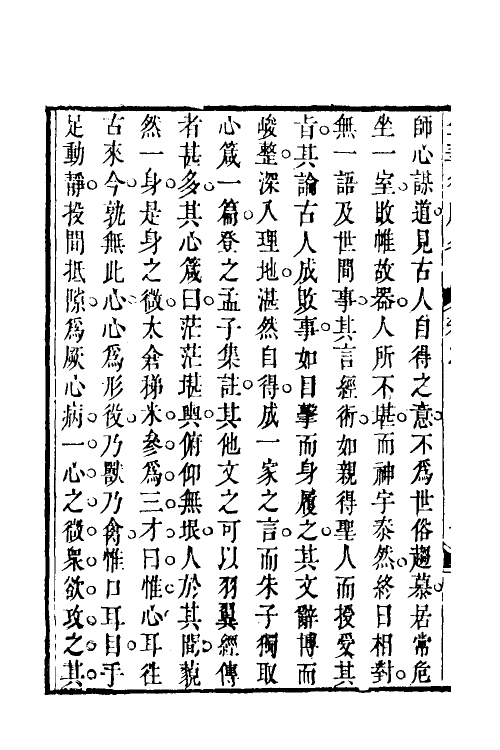 師心謀道見古人自得之意不為世俗趨慕居常危
坐一室敗帷故器人所不堪而神宇泰然終日相對
無一語及世間事其言經術如親得聖人而授受其
旨其論古人成敗事如目擊而身履之其文辭博而
峻整深入理地湛然自得成一家之言而朱子獨取
心箴一篇登之孟子集註其他文之可以羽翼經傳
者甚多其心箴曰茫茫堪輿俯仰無垠人於其間藐
然一身是身之微太倉稊米參為三才曰惟心耳往
古來今孰無此心心為形役乃獸乃禽惟口耳目手
足動靜投間抵隙為厥心病一心之微衆欲攻之其